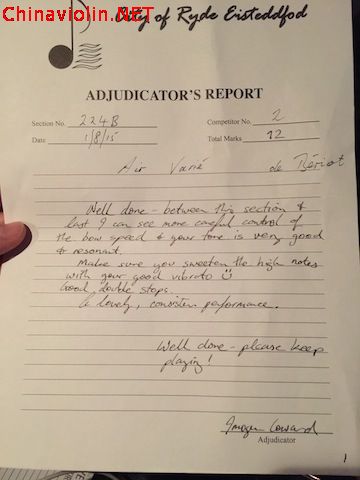 Chinaviolin.NET
City of Ryde Eisteddfod
ADJUDICATOR'S REPORT
Section No. 224B Competitor No. 2
Date 1/8/15 Total Marks 92
Air Varié de Bériot
Well done - between this section &
last I can see more careful control of
the bow speed & your tone is very good
& resonant.
Make sure you sweeten the high notes
with your good vibrato ☺
Good, double stops.
A lovely, consisten performance.
Well done - please keep
playing!
Imogen Coward
Adjudicator
1